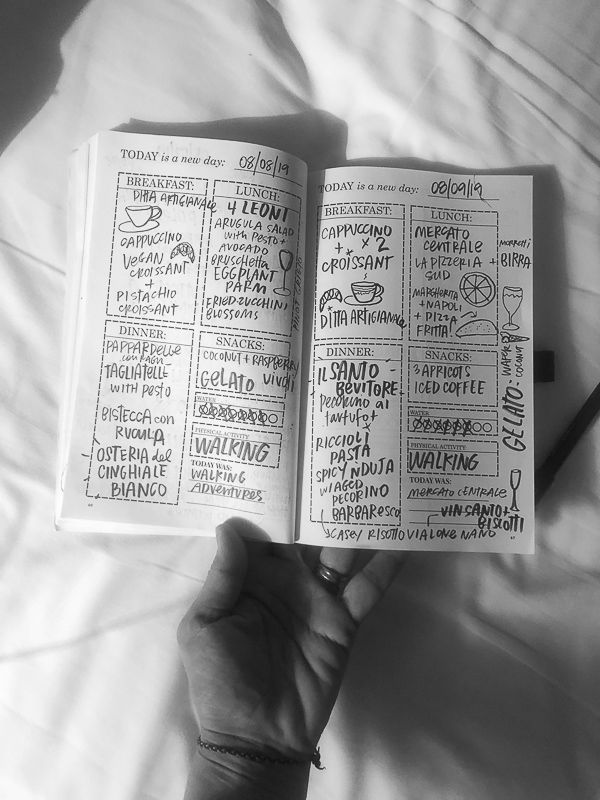 TODAY is a new day: 08/08/19
BREAKFAST:
DITTA ARTIGIANALE
CAPPUCCINO
VEGAN
CROISSANT
+
PISTACHIO
CROISSANT
LUNCH:
4 LEONI
ARUGULA SALAD
with PESTO +
AVOCADO
BRUSCHETTA
EGGPLANT
PARM
FRIED ZUCCHINI
BLOSSOMS
DINNER:
PAPPARDELLE
con RAGU
TAGLIATELLE
with PESTO
BISTECCA con
RUCULA
OSTERIA del
CINGHIALE
BIANCO
SNACKS:
COCONUT + RASPBERRY
GELATO VIVOLI
WATER
PHYSICAL ACTIVITY
WALKING
TODAY WAS:
WALKING
ADVENTURES
TODAY is a new day: 08/09/19
BREAKFAST:
CAPPUCCINO
+ x 2
CROISSANT
DITTA ARTIGIANALE
LUNCH:
MERCATO
CENTRALE
LA PIZZERIA +
SUD
MARGHERITA
+ NAPOLI
+ PIZZA
FRITTA!
MORETTI
BIRRA
DINNER:
IL SANTO
BEVITORE
Pecorino al
tartufo +
RICCIOLI
PASTA
SPICY NDUJA
W/ AGED
PECORINO
BARBARESCO
SNACKS:
3 APRICOTS
ICED COFFEE
GELATO:
COCONUT
WATER
PHYSICAL ACTIVITY
WALKING
TODAY WAS:
MERCATO CENTRALE
VIN SANTO +
BISCOTTI
CASEY RISOTTO VIALONE NANO